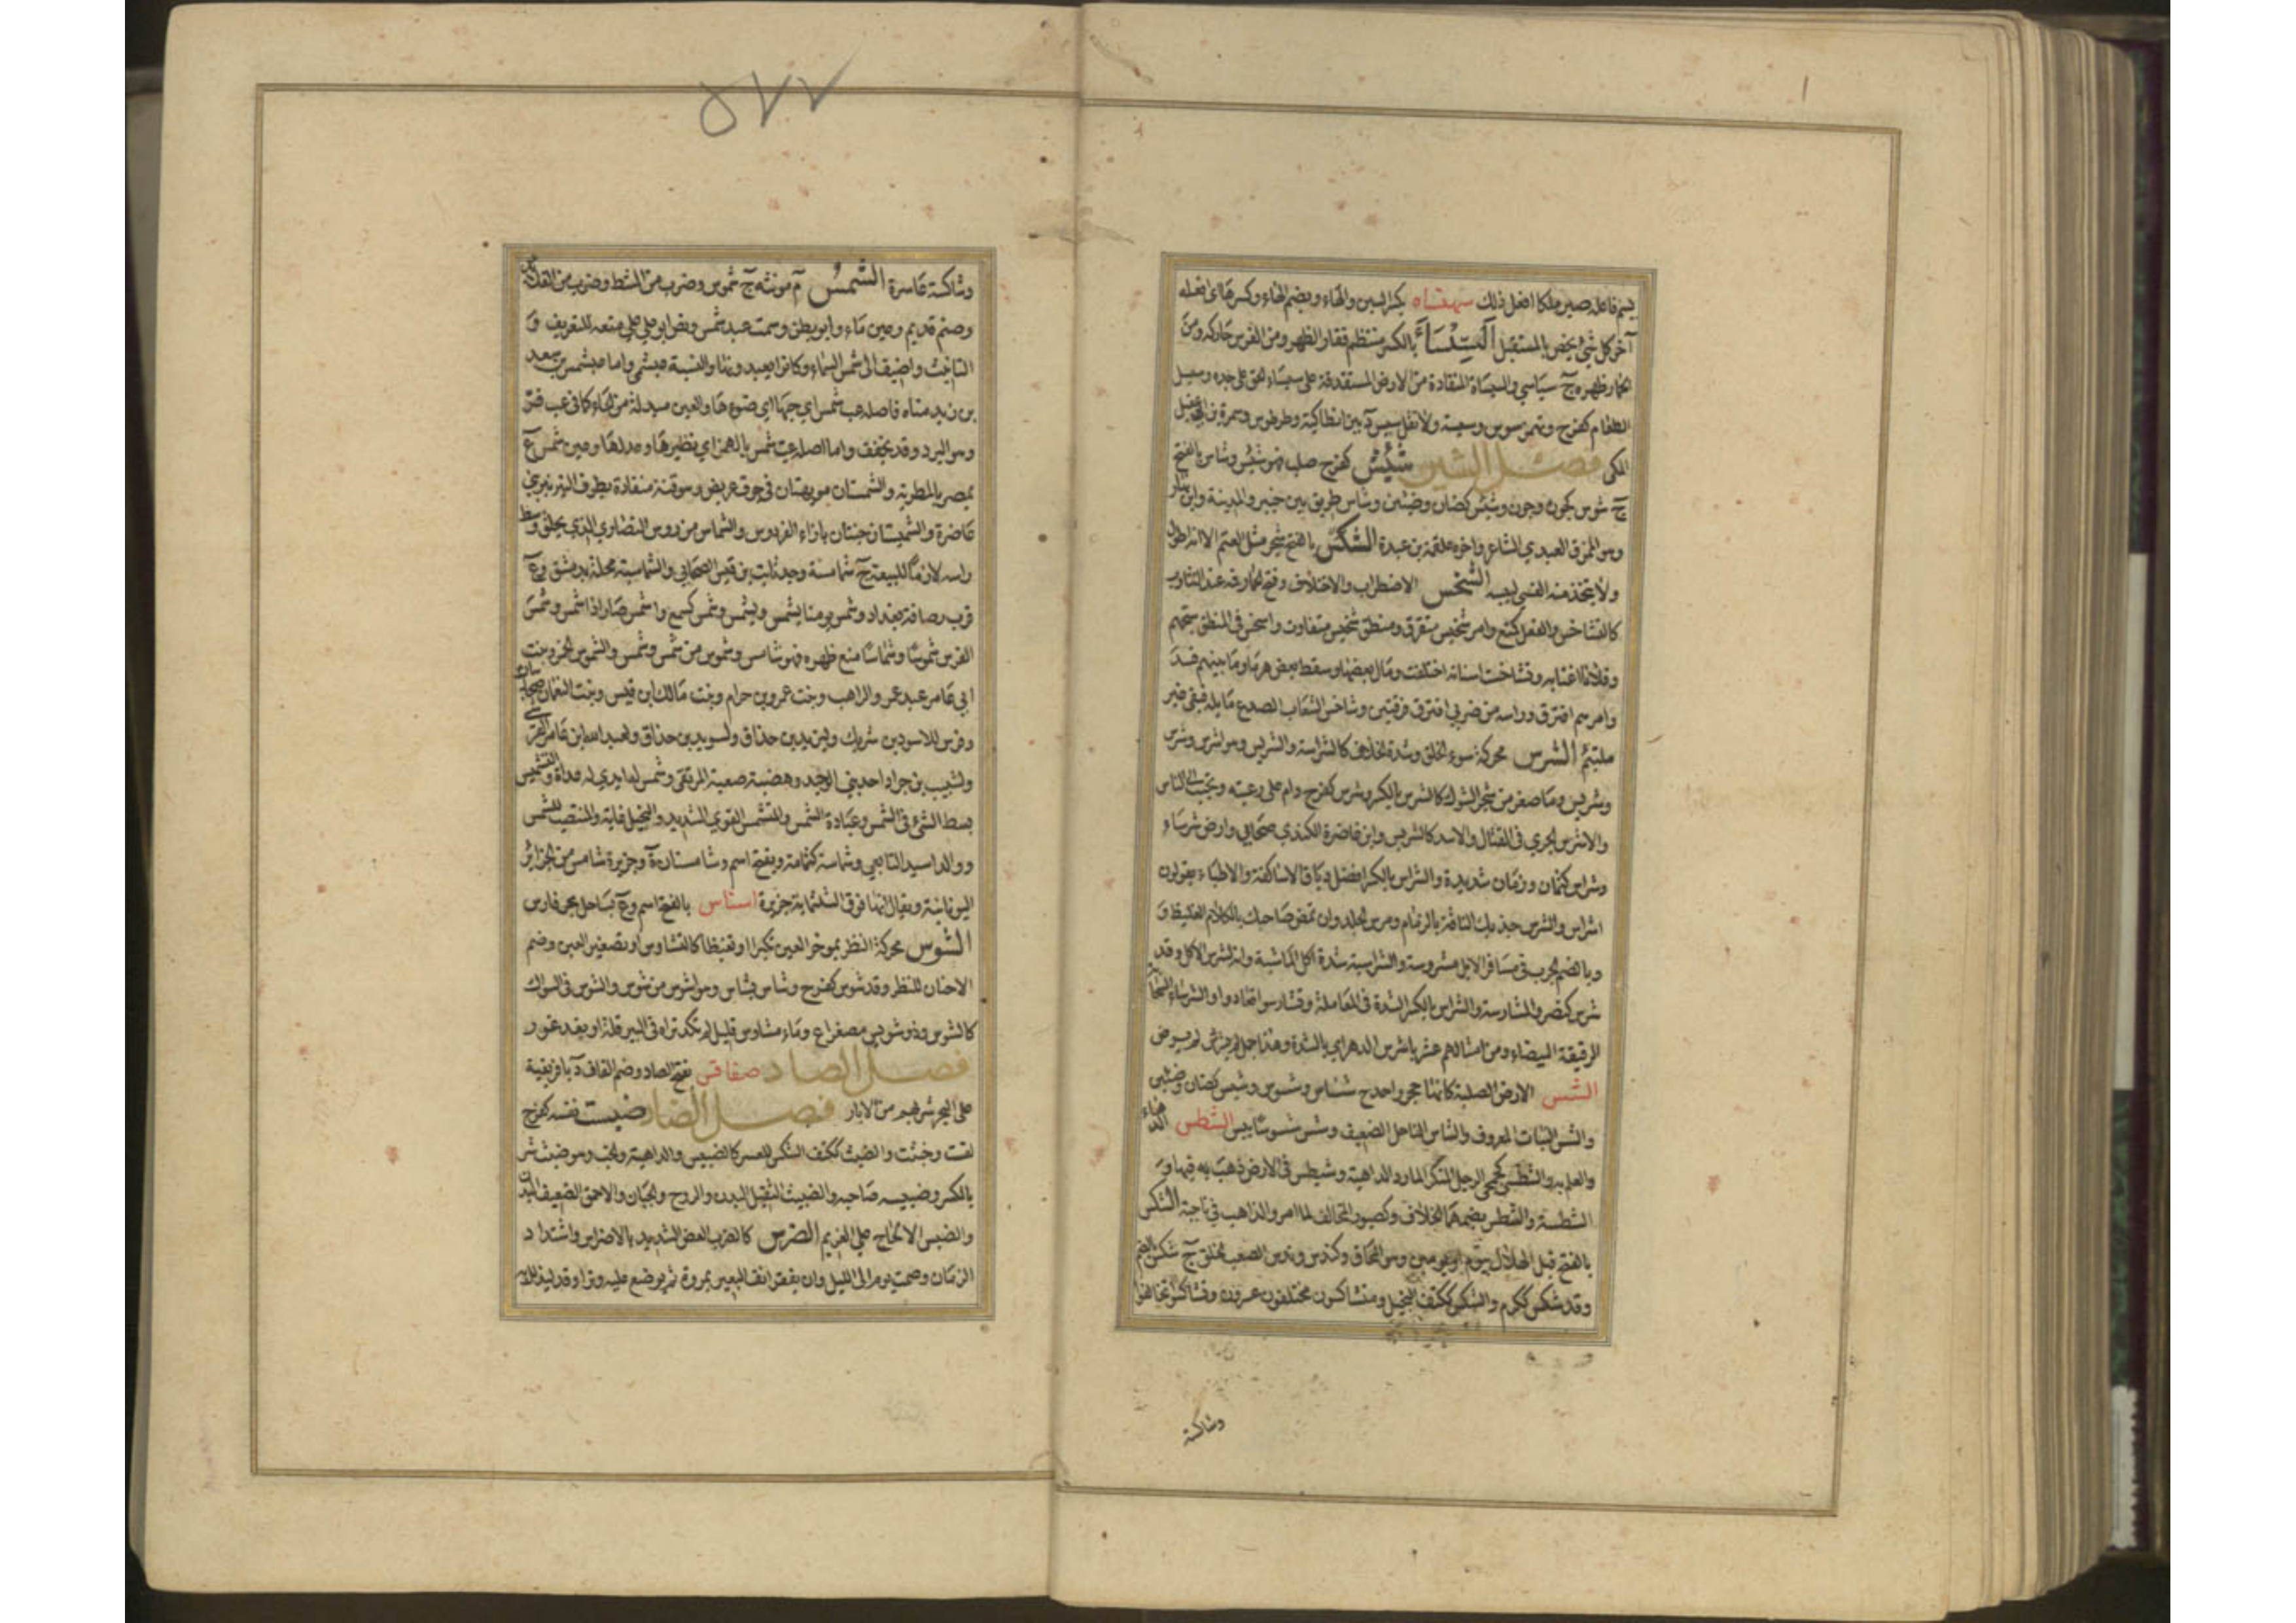 يسم فاعله صير ملكا افعل ذلك سهنساه بكسر السين والهاء وبضم الهاء وكسرها اي افعله
آخر كل شيء يخص بالمستقبل السِّيسَاءُ بالكسر منتظم فقار الظهر ومن الفرس حاركه ومن
الحمار ظهره ج سياسي والسيساة المنقادة من الارض المستدقة وحمله على سيساء الحق على حده
الطعام كفرح وسيسة ولا تقل سيس د بين انطاكية وطرطوس
المكي فصل الشين شئس كفرح صلب فهو شئس وشأس بالفتح
ج شؤس كجون وجون وشئس كضان وضئين وشاس طريق بين خيبر والمدينة وابن نهار
وهو الممزق العبدي الشاعر واخو علقمة بن عبدة الشكس بالفتح شجر مثل العتم الا انه اطول
ولا يتخذ منه القسي ليبسه الشخس الاضطراب والاختلاف وفتح الحمار فمه عند التثاوب
كالتشاخس والفعل كمنع وامر شخيس متفرق ومنطق شخيس متفاوت واشخس في المنطق تجهم
وفلانا اغتابه وتشاخست اسنانه اختلفت ومال بعضها وسقط بعض هرما وما بينهم فسد
وامرهم افترق وراسه من ضربي افترق فرقتين وشاخس الشعاب الصدع مايله فبقي غير
ملتئم الشرس محركة سوء الخلق وشدة الخلاف كالشراسة والشريس وهو اشرس وشرس
وشريس وما صغر من شجر الشوك كالشرس بالكسر وشرس كفرح دام على رعيه وتحبب الى الناس
والاشرس الجري في القتال والاسد كالشريس وابن غاضرة الكندي صحابي وارض شرساء و
وشراس كثمان وزمان شديدة والشراس بالكسر افضل دباق الاساكفة والاطباء يقولون
اشراس والشرس جذبك الناقة بالزمام ومرس الجلد وان تمض صاحبك بالكلام الغليظ و
وبالضم الجرب في مشافر الابل مشروسة والشراسة شدة اكل الماشية وانه لشرس الاكل وقد
شرس كنصر والمشارسة والشراس بالكسر الشدة في المعاملة وتشارسوا تعادوا والشرساء السحابة
الرقيقة البيضاء ومن امثالهم عثر باشرس الدهر اي بالشدة وهذا جمل لم يرض
الشس الارض الصلبة كانها حجر واحد ج شساس وشسوس وشسيس كضان وضئين
والشس النبات المعروف والشاس الناحل الضعيف وشس شسوسا يبس الشطس الدهاء
والعلم به والشطسي كجمحي الرجل المنكر المارد الداهية وشطس في الارض ذهب به فيها و
الشطسة والشطس بضمهما الخلاف وكصبور المخالف لما امر والذاهب في ناحية الشكس
بالفتح قبل الهلال بيوم او يومين وهو المحاق وكندس وندس الصعب الخلق ج شكس بالضم
وقد شكس ككرم والشكس ككتف البخيل ومتشاكسون مختلفون عسرون وتشاكسوا تخالفوا
وشاكسة
٥٧٧
وشاكسة عاسرة الشمسُ م مونثه ج شموس وضرب من المشط وضرب من القلائد
وصنم قديم وعين ماء وابو بطن وسمت عبد شمس ونص ابو علي على منعه للتعريف و
التانيث واضيف الى شمس السماء وكانوا يعبدونها والنسبة عبشمي واما عبشمس بن سعد
بن زيد مناه فاصله عب شمس اي حبها اي ضوءها والعين مبدلة من الحاء كما في عب قر
وهو البرد وقد يخفف واما اصله عبء شمس بالهمز اي نظيرها وعدلها وعين شمس ع
بمصر بالمطرية والشمستان مويهتان في جوف عريض وهو قنة منقادة بطرف النير نير بني
غاضرة والشميستان جنتان بازاء الفردوس والشماس من روس النصارى الذي يحلق وسط
راسه لازما للبيعة ج شمامسة وجد ثابت بن قيس الصحابي والشماسية محلة بدمشق وع
قرب رصافة بغداد وشمس يومنا يشمس ويشمس وشمس كسمع واشمس صار ذا شمس وشمس
الفرس شموسا وشماسا منع ظهره فهو شامس وشموس من شمس وشمس والشموس الخمر وبنت
ابي عامر عبد عمرو الراهب وبنت عمرو بن حرام وبنت مالك ابن قيس وبنت النعمان صحابيات
وفرس للاسود بن شريك وليزيد بن خذاق ولسويد بن خذاق ولعبد الله ابن عامر القرشي
ولشبيب بن جراد احد بني الوحيد وهضبة صعبة المرتقى وشمس له ابدى له عداوة والتشميس
بسط الشيء في الشمس وعبادة الشمس والمتشمس القوي الشديد والبخيل غاية والمنتصب للشمس
ووالد اسيد التابعي وشماسة كثمامة ويفتح اسم وشامستان ة وجزيرة شامس من الجزائر
اليونانية ويقال انها فوق الثلثمائة جزيرة اسناس بالفتح اسم وع بساحل بحر فارس
الشوس محركة النظر بموخر العين تكبرا او تغيظا كالتشاوس او تصغير العين وضم
الاجفان للنظر وقد شوس كفرح وشاس يشاس وهو اشوس من شوس والشوس في السواك
كالشوص وذو شويس مصغرا ع وماء مشاوس قليل لم تكد تراه في البير قلة او بعد غور
فصل الصاد صفاقس بفتح الصاد وضم القاف د بافريقية
على البحر شربهم من الابار فصل الضاد ضبست نفسه كفرح
لقست وخبثت والضبس ككتف الشكس العسر كالضبيس والداهية والخب وهو ضبس شر
بالكسر وضبيسه صاحبه والضبيس الثقيل البدن والروح والجبان والاحمق الضعيف البدن
والضبس الالحاح على الغريم الضرس كالضرب العض الشديد بالاضراس واشتداد
الزمان وصمت يوم الى الليل وان يفقر انف البعير بمروة ثم يوضع عليه وتر او قد ليذلل